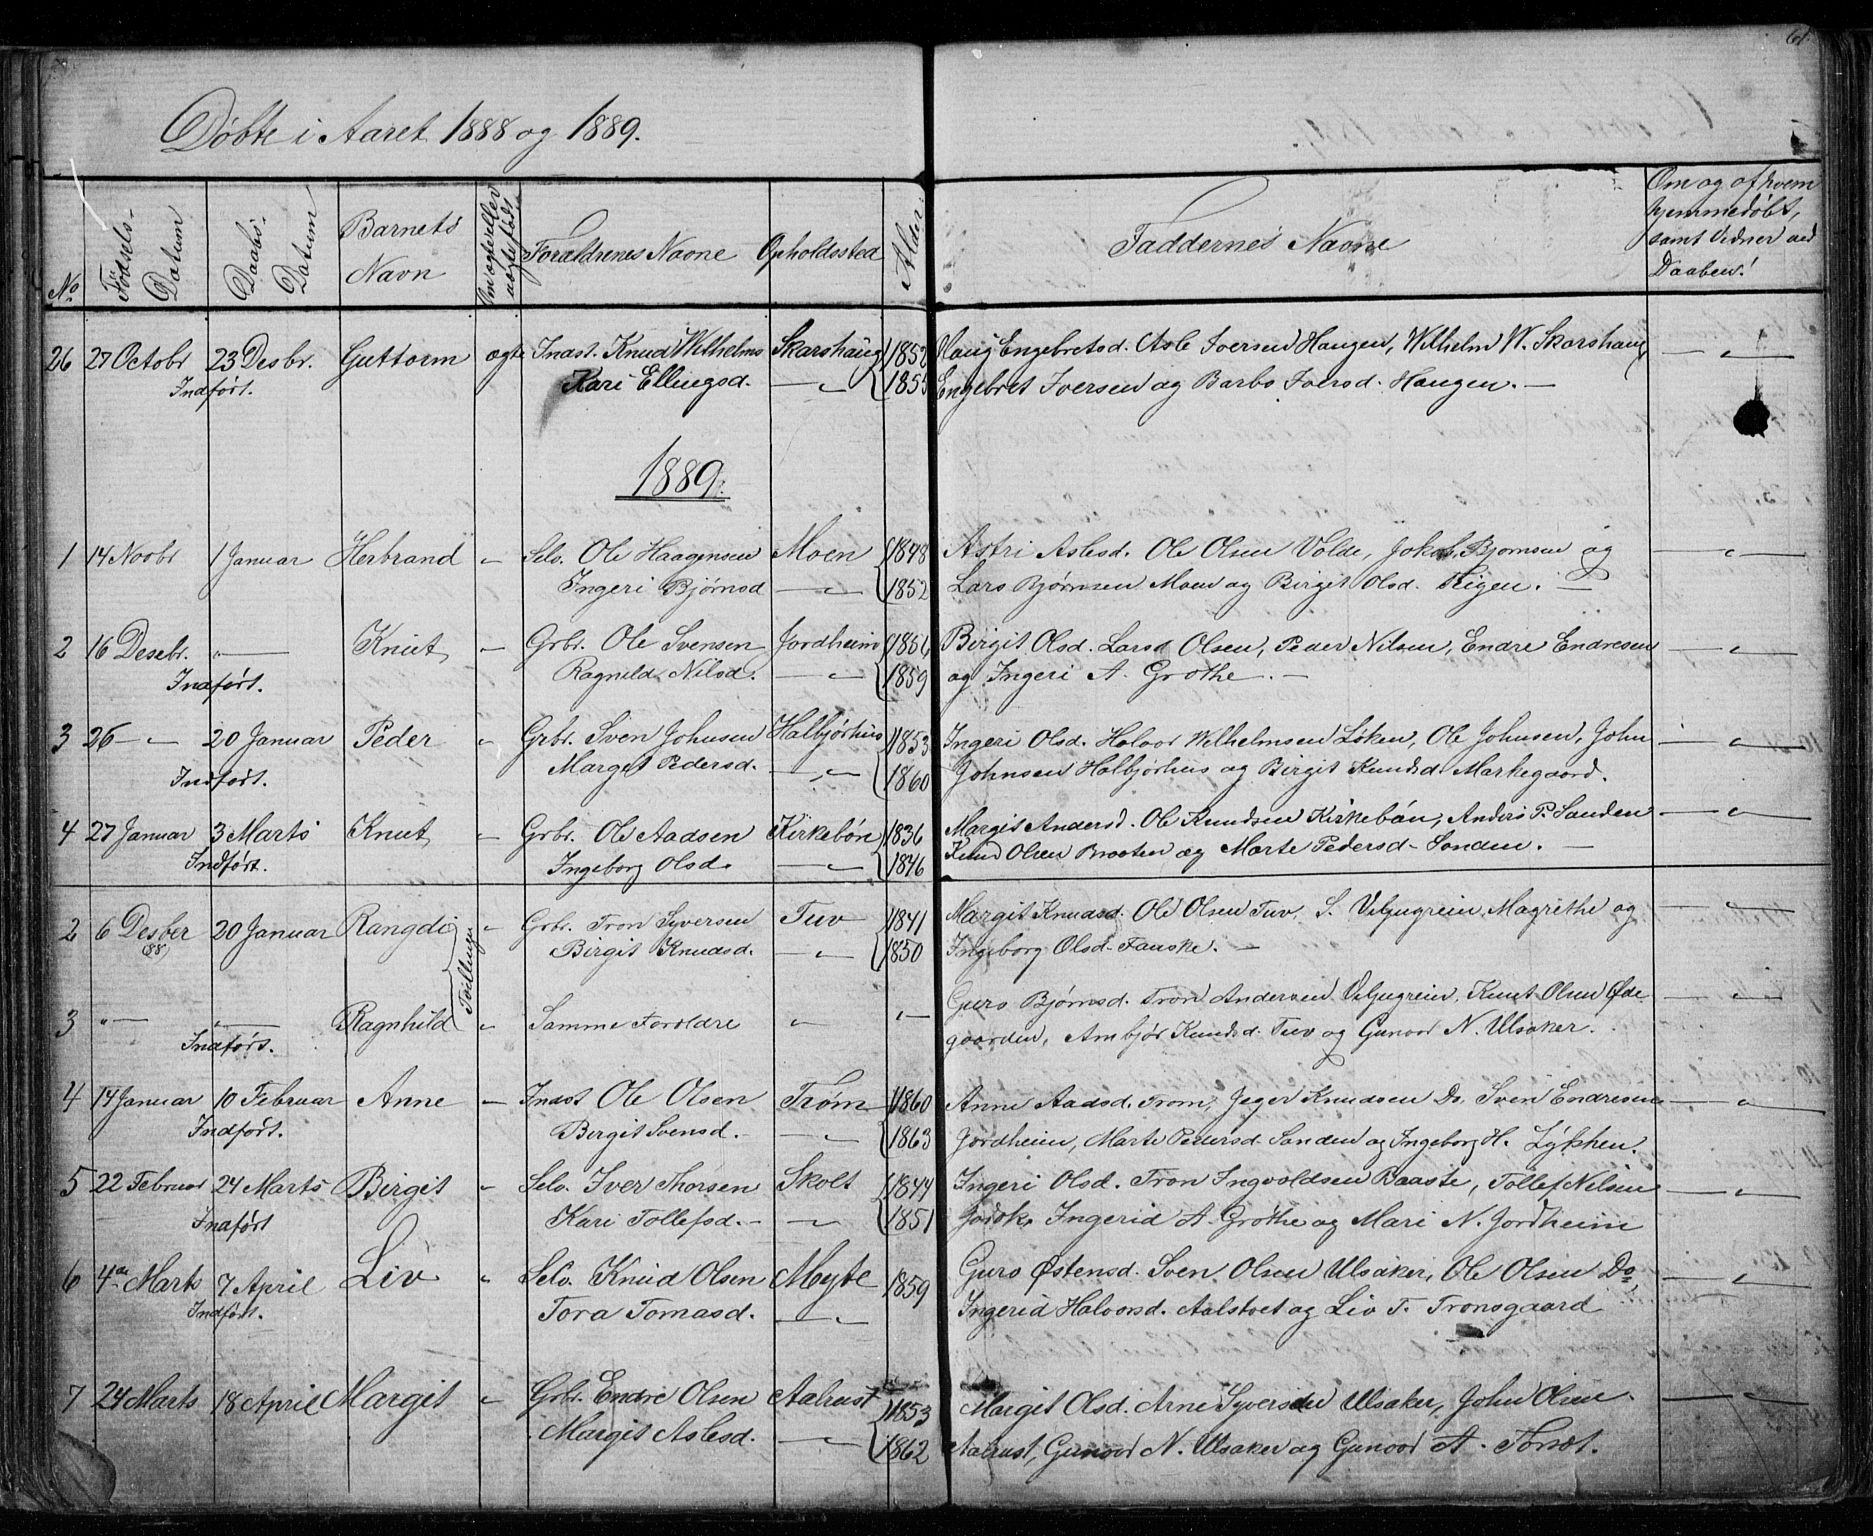 61.
Døbte i Aaret 1888 og 1889.
No
Födsels-Datum
Daabs-Datum
Barnets Navn
Om ægte eller uægte født
Forældrenes Navne
Opholdssted
Alder.
Faddernes Navne
Om og af hvem
hjemmedøbt,
samt Vidner ved
Daaben!
26 27 Octobr 23 Desbr. Guttorm ægte Indst. Knud Wilhelms Skarshaug 1852 Haug Engebretsd. Asle Iversen Haugen, Wilhelm W. Skarshaug — " —
Indført. Kari Ellingsd. — " — 1855 Engebret Iversen og Barbo Iversd. Haugen. —
1889.
1 14 Novbr 1 Januar Herbrand " Selv. Ole Haagensen Moen 1848 Astri Aslesd. Ole Olsen Volde, Jokob Bjornsen og — " —
Ingeri Bjørnsd — " — 1852 Lars Bjørnsen Moen og Birgit Olsd. Trigen. —
2 16 Desebr. " — Knut " Grbr. Ole Svensen Jordheim 1856 Birgit Olsd. Larsd Olsen, Peder Nilsen, Endre Endresen — " —
Indført. Ragnild Nilsd. — " — 1859 og Ingeri A. Grothe. —
3 26 — " — 20 Januar Peder " Grbr. Sven Johnsen Halbjørhus 1853 Ingeri Olsd. Holvor Welhelmsen Løken, Ole Johnsen, John — " —
Indført. Marget Pedersd. — " — 1860 Johnsen Halbjørhus og Birgit Knudsd. Markegaard.
4 27 Januar 3 Marts Knut " Grbr. Ole Aadsen Kirkebøn 1836 Margit Andersd. Ole Knudsen Kirkebøn, Anders P. Sanden — " —
Indført. Ingeborg Olsd. — " — 1846 Knud Olsen Braaten og Marte Pedersd. Sonden. —
2 6 Desber 20 Januar Rangdi " Grbr. Tron Syversen Tuv 1841 Margit Knudsd. Ole Olsen Tuv. S. Veljugrein, Magrethe og — " —
(88) Tvillinger Birgit Knudsd. — " — 1850 Ingeborg Olsd. Fauske. —
3 " — " — Ragnhild " Samme Foroldre " " — Guro Bjørnsd. Tron Andersen Veljugrein, Knut Olsen Øde — " —
Indførs. gaarden, Ambjør Knudsd. Tuv og Gunvor N. Ulsaker.
4 14 Januar 10 Februar Anne — Indst Ole Olsen Trøm 1860 Anne Aadsd. Trøm, Jeger Knudsen Do. Sven Endresen — " —
Indført. Birgit Svensd. — " — 1863 Jordheim, Marte Pedersd. Sanden og Ingeborg H. Lykken.
5 22 Februar 24 Marts Birgit " Selv. Iver Thorsen Skolt 1844 Ingeri Olsd. Tron Ingvoldsen Baaste, Tollef Nilsen — " —
Indført Kari Tollefsd. — " — 1851 Ingerid A. Grøthe og Mari N. Jordheim
6 4de Marts 7 April Liv " Selv. Knud Olsen Mejte 1859 Guro Østensd. Sven Olsen Ulsaker, Ole Olsen Do, — " —
Indført. Tora Tomasd. — " — Ingerid Halvorsd. Aalstvet og Liv T. Tronsgaard
7 24 Marts 18 April Margit " Grbr. Endre Olsen Aalrust 1853 Margit Olsd. Arne Syversen Ulsaker, John Olsen — " —
Margit Aslesd. — " — 1862 Aalrust, Gunvor N. Ulsaker og Gunvor A.